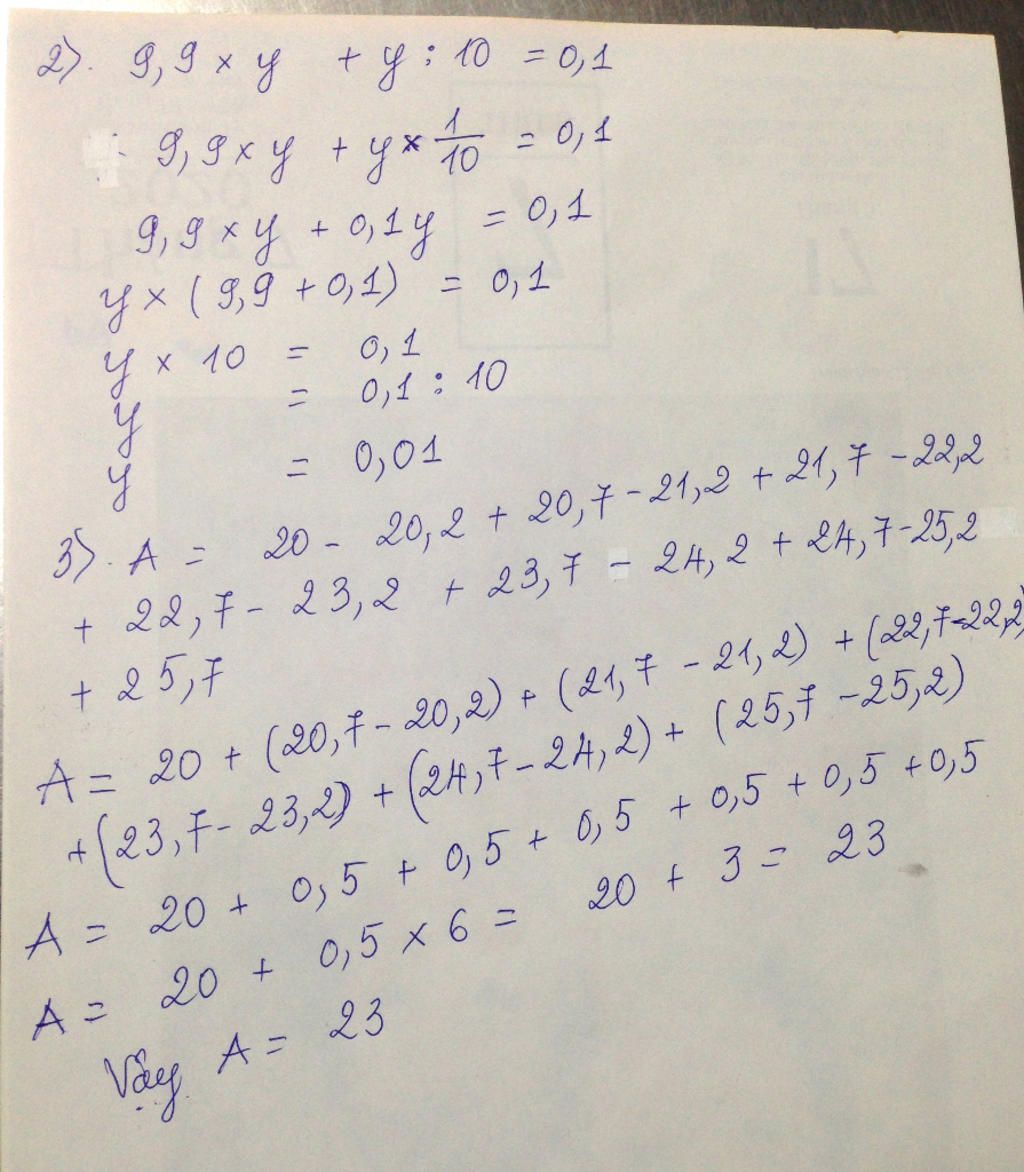 2). 9,9 × y + y : 10 = 0,1
9,9 × y + y × 1/10 = 0,1
9,9 × y + 0,1y = 0,1
y × (9,9 + 0,1) = 0,1
y × 10 = 0,1
y = 0,1 : 10
y = 0,01
3). A = 20 - 20,2 + 20,7 - 21,2 + 21,7 - 22,2
+ 22,7 - 23,2 + 23,7 - 24,2 + 24,7 - 25,2
+ 25,7
A = 20 + (20,7 - 20,2) + (21,7 - 21,2) + (22,7 - 22,2)
+ (23,7 - 23,2) + (24,7 - 24,2) + (25,7 - 25,2)
A = 20 + 0,5 + 0,5 + 0,5 + 0,5 + 0,5 + 0,5
A = 20 + 0,5 × 6 = 20 + 3 = 23
Vậy A = 23